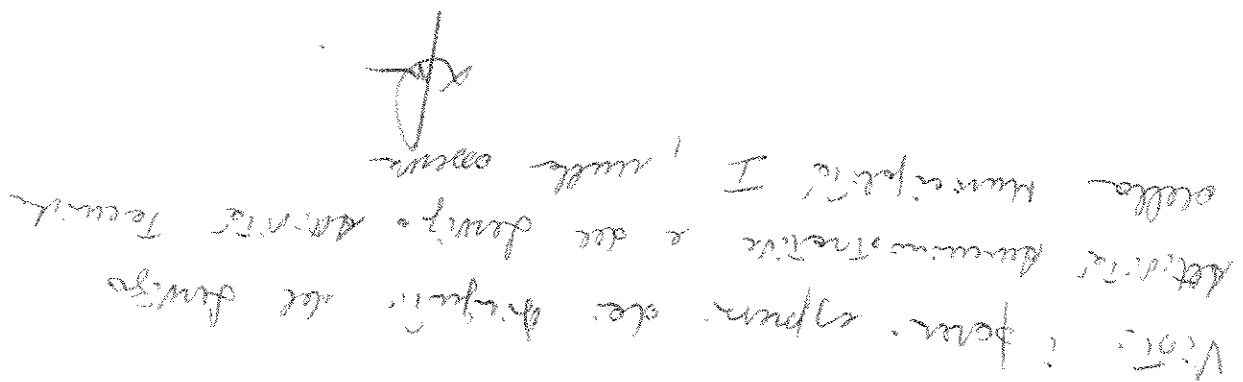 Visti i pareri espressi dai dirigenti del Servizio
Attività Amministrative e del Servizio Attività Tecniche
della Municipalità I, nulla osserva